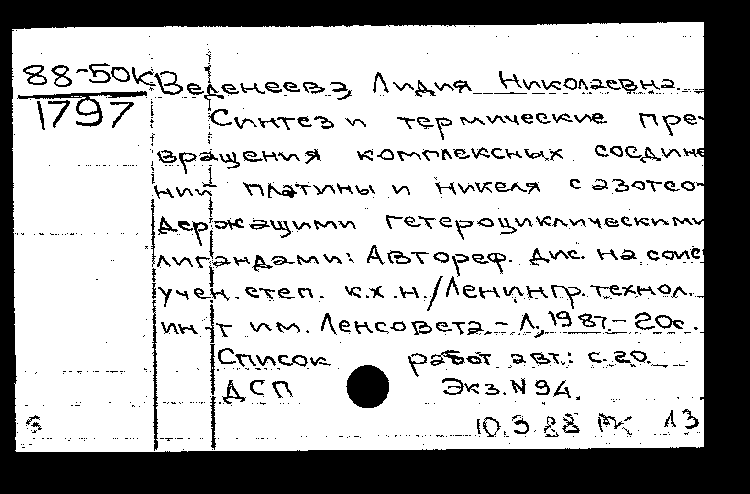 88-50К Веденеева Лидия Николаевна
1797
Синтез и термические пре-
вращения комплексных соедине
ний платины и никеля с азотсо-
держащими гетероциклическими
лигандами: Автореф. дис. на соис
учен. степ. к.х.н./Ленингр. технол.
ин-т им. Ленсовета. - Л., 1987. - 20с.
Список работ авт.: с. 20
ДСП Экз. N 94.
10.3.88 13